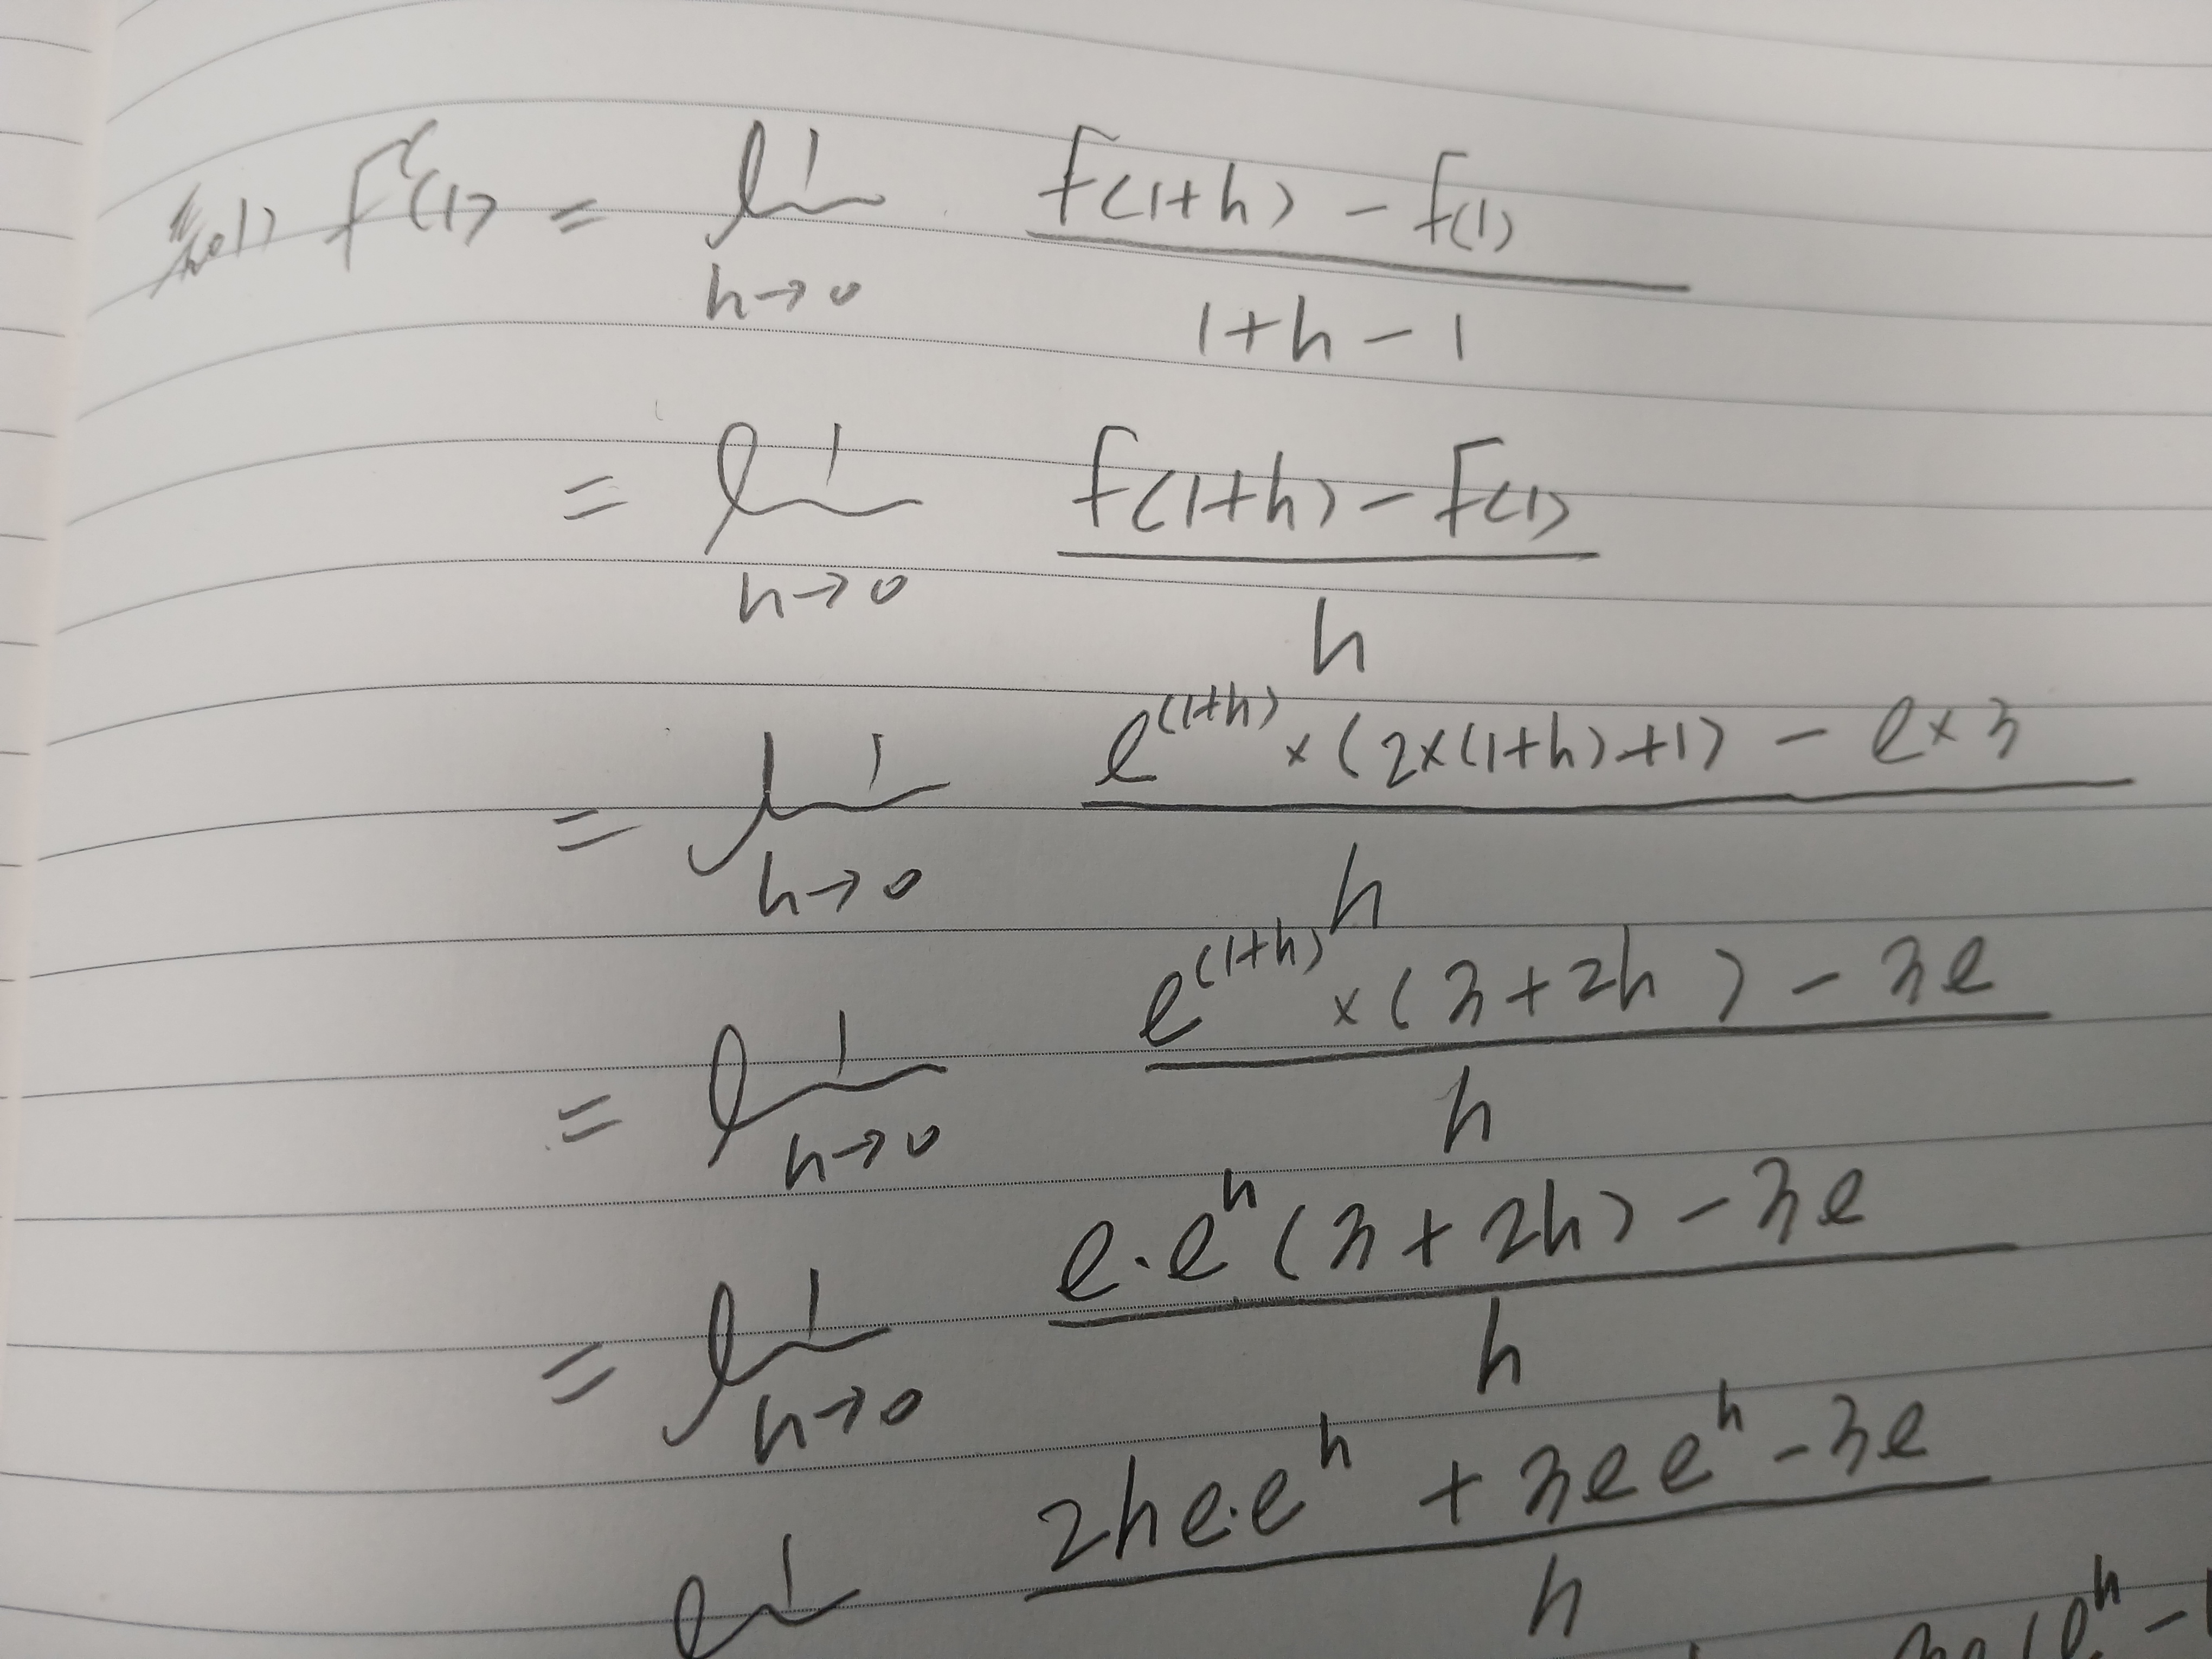 sol) f'(1) = lim h→0 f(1+h) - f(1) / 1+h-1
= lim h→0 f(1+h) - f(1) / h
= lim h→0 e^(1+h) × (2×(1+h)+1) - e×3 / h
= lim h→0 e^(1+h) × (3+2h) - 3e / h
= lim h→0 e·e^h (3+2h) - 3e / h
lim 2he·e^h + 3ee^h - 3e / h
(e^h -